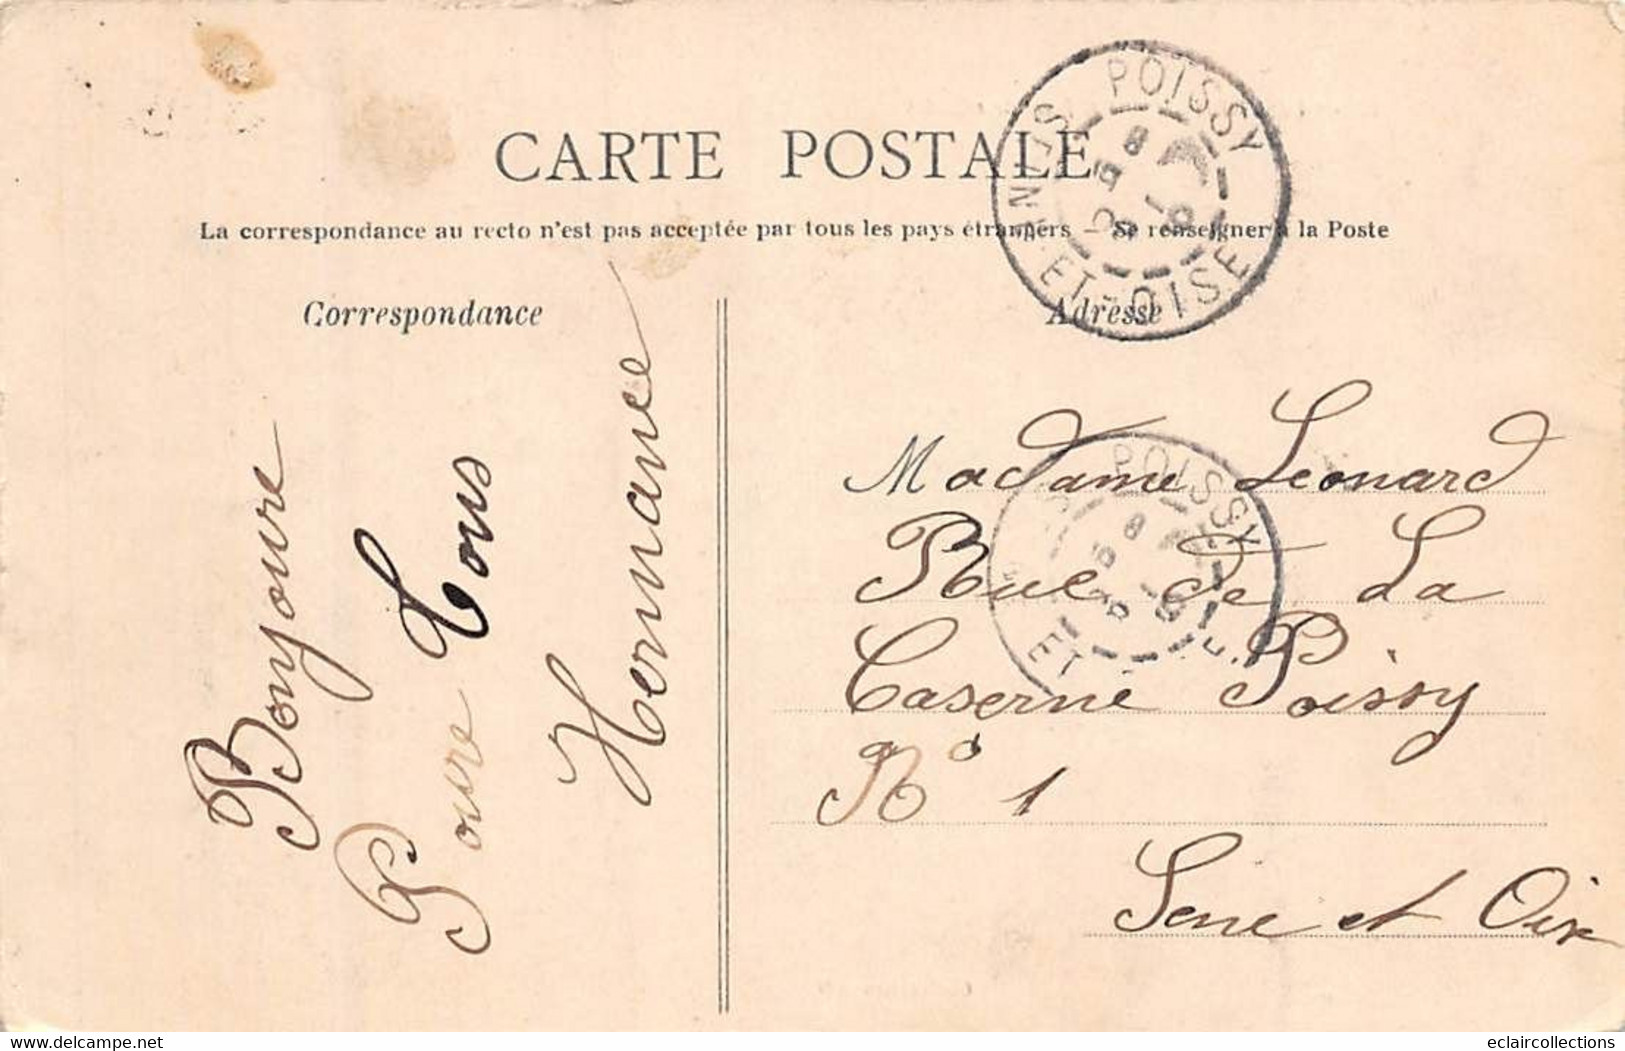 CARTE POSTALE
La correspondance au recto n'est pas acceptée par tous les pays étrangers – Se renseigner à la Poste
Correspondance
Bonjoure
Poure Tous
Hermance
Adresse
Madame Leonard
Rue de La
Caserne Poissy
No 1
Sene et Oise
POISSY
ET-OISE
POISSY
ET
delcampe.net
eclaircollections